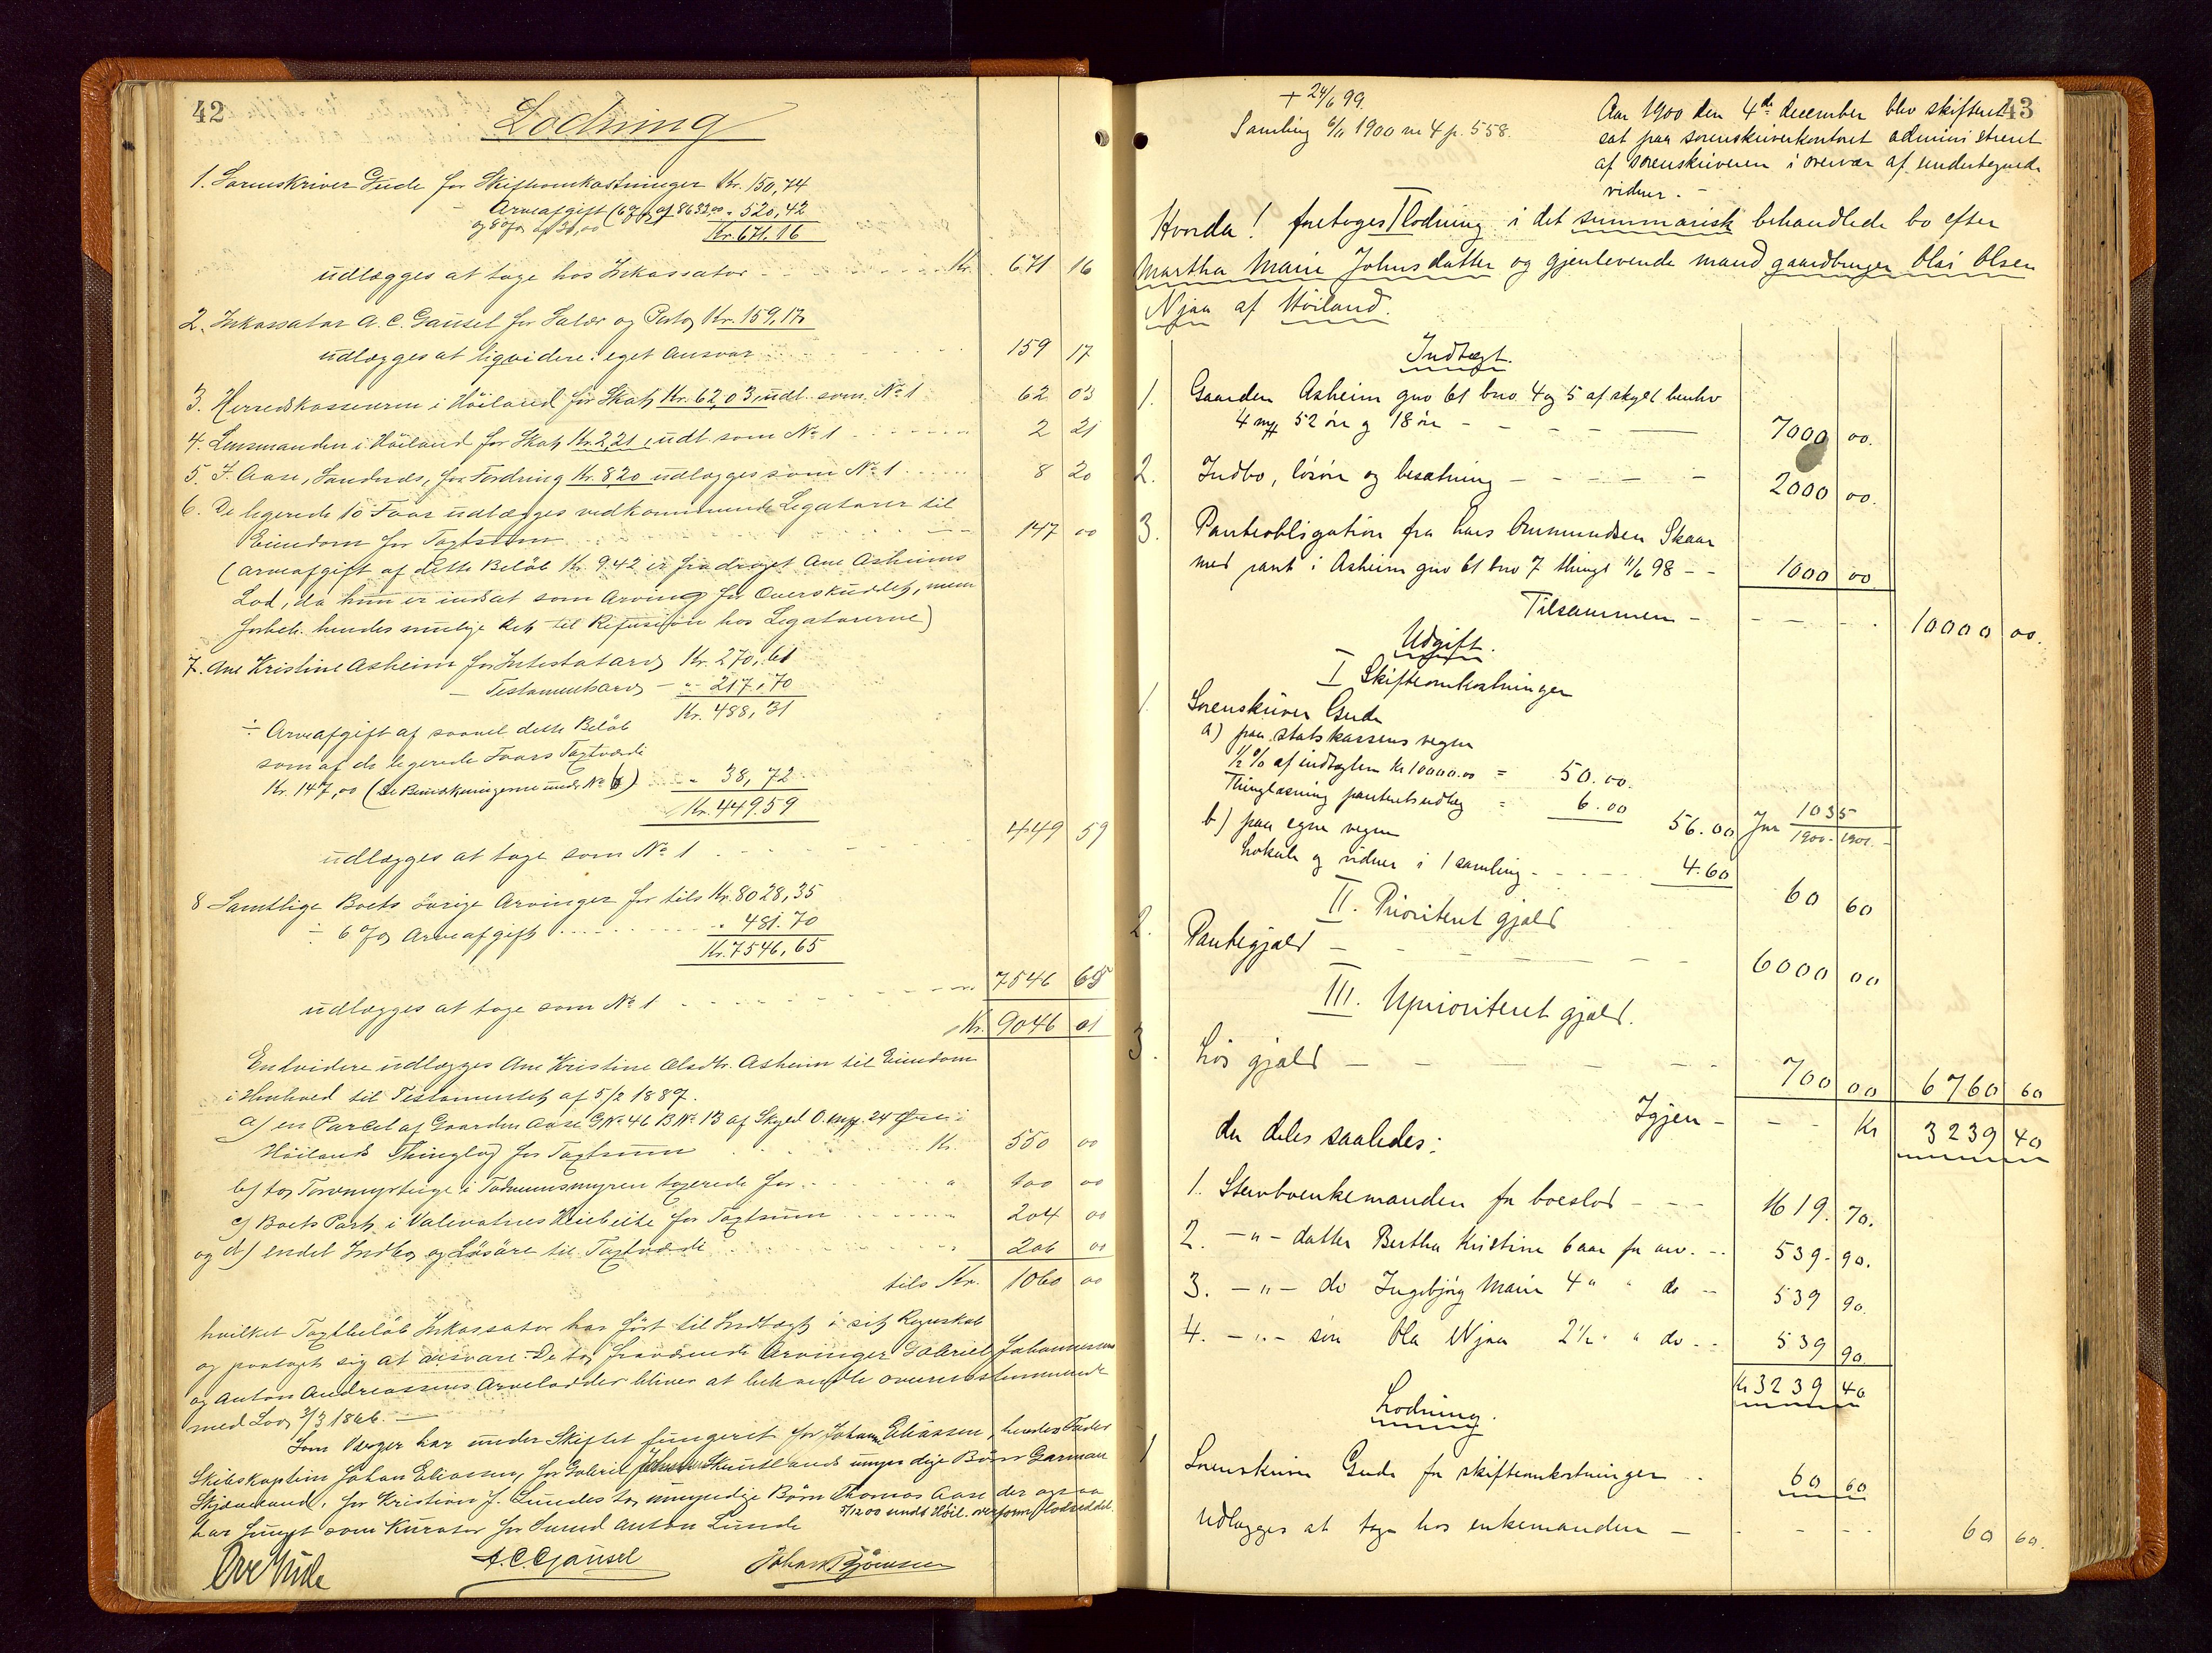 42
Lodning
1. Sorenskriver Gude for Skifteomkostninger Kr. 150,74
Arveafgift (6% af 8633,00 " 520,42
og 8% af 30,00
Kr. 671.16
udlægges at tage hos Inkassator Kr. 671 16
2. Inkassator A. C. Gausel for Salær og Porto Kr. 159,17
udlægges at liqvidere: eget Ansvar 159 17
3. Herredskassereren i Höiland for Skat Kr. 62,03, udl. som No 1 62 03
4. Lensmanden i Höiland for Skat Kr. 2,21, udl. som No 1 2 21
5. F. Aase, Sandnæs, for Fordring Kr. 8,20 udlægges som No 1 8 20
6. De legerede 10 Faar udlægges vedkommende Legatarer til
Eiendom for Taxtsum 147 00
(Arveafgift af dette Beløb Kr. 9.42 er fradraget Ane Asheims
Lod, da hun er indsat som Arving for Overskuddet, men
forbeh. hendes mulige Ret til Refusion hos Legatarerne)
7. Ane Kristine Asheim for Intestatarv Kr. 270,61
— Testamentsarv — " 217,70
Kr. 488,31
÷ Arveafgift af saavel dette Beløb
som af de legerede Faars Taxtværdi
Kr. 147,00 (se Bemærkningerne under No 6) " 38,72
Kr. 449.59
udlægges at tage som No 1 449 59
8 Samtlige Boets övrige Arvinger for tils. Kr. 8028,35
÷ 6% Arveafgift " 481.70
Kr. 7546,65
udlægges at tage som No 1 7546 65
Kr. 9046 01
Endvidere udlægges Ane Kristine Olsdtr. Asheim til Eiendom
i Henhold til Testamentet af 5/2 1887.
a) en Parcel af Gaarden Aase GNo 46 BNo 13 af Skyld 0. mrk. 24 Øre i
Höilands Thinglag for Taxtsum Kr. 550 00
b) to Torvmyrteige i taxerede for " 100 00
c) Boets Part i Heibeite for Taxtsum 204 00
og d) endel Indbo og Løsøre til Taxtværdi 206 00
tils. Kr. 1060 00
hvilket Taxtbeløb Inkassator har ført til Indtægt i sit Regnskab
og paataget sig at ansvare. De to fraværende Arvinger Gabriel Johannessens
og Anton Andreassens Arvelodder bliver at behandle overensstemmende
med Lov 3/3 1866. —
Som Værger har under Skiftet fungeret for Johanne Eliassen, hendes Fader
Skibskaptein Johan Eliassen, for Gabriel Skeutlands umyndige Børn Garman
for Kristian J. Lundes to umyndige Børn Thomas Aase der ogsaa
har fungt. som Kurator for Svend Anton Lunde 5/12 00 sendt Höil. overform. Lodseddel.
Ove Gude
A. C. Gausel
Johan Björnsen
43
+ 24/6 99.
Samling 6/11 1900 nr 4 p. 558.
Aar 1900 den 4de december blev skifteret
sat paa sorenskriverkontoret administreret
af sorenskriveren i overvær af undertegnede
vidner. -
Hvorda! foretoges lodning i det summarisk behandlede bo efter
Martha Marie Johnsdatter og gjenlevende mand gaardbruger Olai Olsen
Njaa af Höiland.
Indtægt.
1. Gaarden Asheim gno 61 bno 4 og 5 af skyld benhv
4 mrk 52 öre og 18 öre - 7000 00.
2. Indbo, lösöre og besætning - 2000 00.
3. Panteobligation fra Lars Ommundsen Skaar
med pant i Asheim gno 61 bno 7 thingl 11/6 98 - - 1000 00
Tilsammen - 10000 00.
Udgift.
I Skifteomkostninger
1. Sorenskriver Gude
a) paa statskassens vegne
1/2 % af indtægten Kr 10000.00 = 50.00.
Thinglæsning panteretsudlæg = 6.00
56.00 Jnr 1035 1900-1901.-
b) paa egne vegne
Lokale og vidner i 1 samling - 4.60
60 60
II. Prioriteret gjæld
2. Pantegjæld - 6000 00
III. Uprioriteret gjæld.
3. Lös gjæld - 700 00 6760 60
Igjen - Kr 3239 40
der deles saaledes:
1. Stervboenkemanden for boeslod - 1619. 70.
2. - " - datter Bertha Kristine 6 aar for arv. - 539. 90.
3. - " - do Ingebjörg Marie 4 " " do - 539 90.
4. - " - sön Ola Njaa 2 1/2 " " do - 539 90
Kr 3239 40
Lodning.
1 Sorenskriver Gude for skifteomkostninger - 60 60
udlægges at tage hos enkemanden - 60 60.